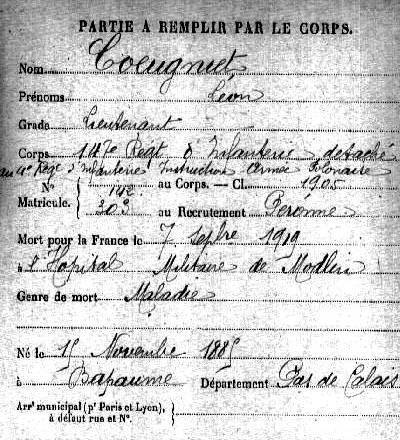 PARTIE A REMPLIR PAR LE CORPS.
Nom Coeugniet
Prénoms Léon
Grade Lieutenant
Corps 147e Regt d'Infanterie détaché
au 4e Regt d'Infanterie Instruction Armée Polonaise
N° 142 au Corps. — Cl. 1905
Matricule. 303 au Recrutement Péronne
Mort pour la France le 7 Septbre 1919
à l'Hopital Militaire de Modlin
Genre de mort Maladie
Né le 15 Novembre 1885
à Bapaume Département Pas de Calais
Arrt municipal (pr Paris et Lyon),
à défaut rue et N°.